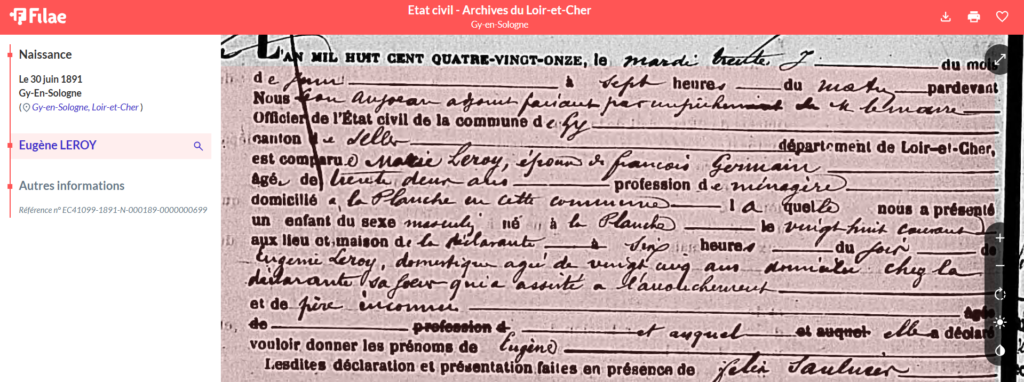 Filae
Etat civil - Archives du Loir-et-Cher
Gy-en-Sologne
Naissance
Le 30 juin 1891
Gy-En-Sologne
( Gy-en-Sologne, Loir-et-Cher )
Eugène LEROY
Autres informations
Référence n° EC41099-1891-N-000189-0000000699
L'AN MIL HUIT CENT QUATRE-VINGT-ONZE, le mardi trente J du mois
de juin à sept heures du matin pardevant
Nous adjoint faisant par empêchement de M le maire
Officier de l'État civil de la commune de Gy
canton de Selles département de Loir-et-Cher,
est comparue Marie Leroy, épouse de françois Germain
âgée de trente deux ans profession de ménagère
domicilié à la Planche en cette commune laquelle nous a présenté
un enfant du sexe masculin né à la Planche le vingt huit courant
aux lieu et maison de la déclarante à six heures du soir de
Eugénie Leroy, domestique agée de vingt cinq ans domiciliée chez la
déclarante sa soeur qui a assisté a l'accouchement
et de père inconnu âgée
de profession d et auquel et auquel elle a déclaré
vouloir donner les prénoms de Eugène
Lesdites déclaration et présentation faites en présence de félix Saulnier